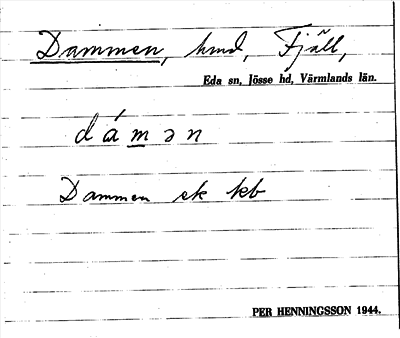 Dammen, hmd, Fjäll,
Eda sn, Jösse hd, Värmlands län.
dámən
Dammen ek kb
PER HENNINGSSON 1944.